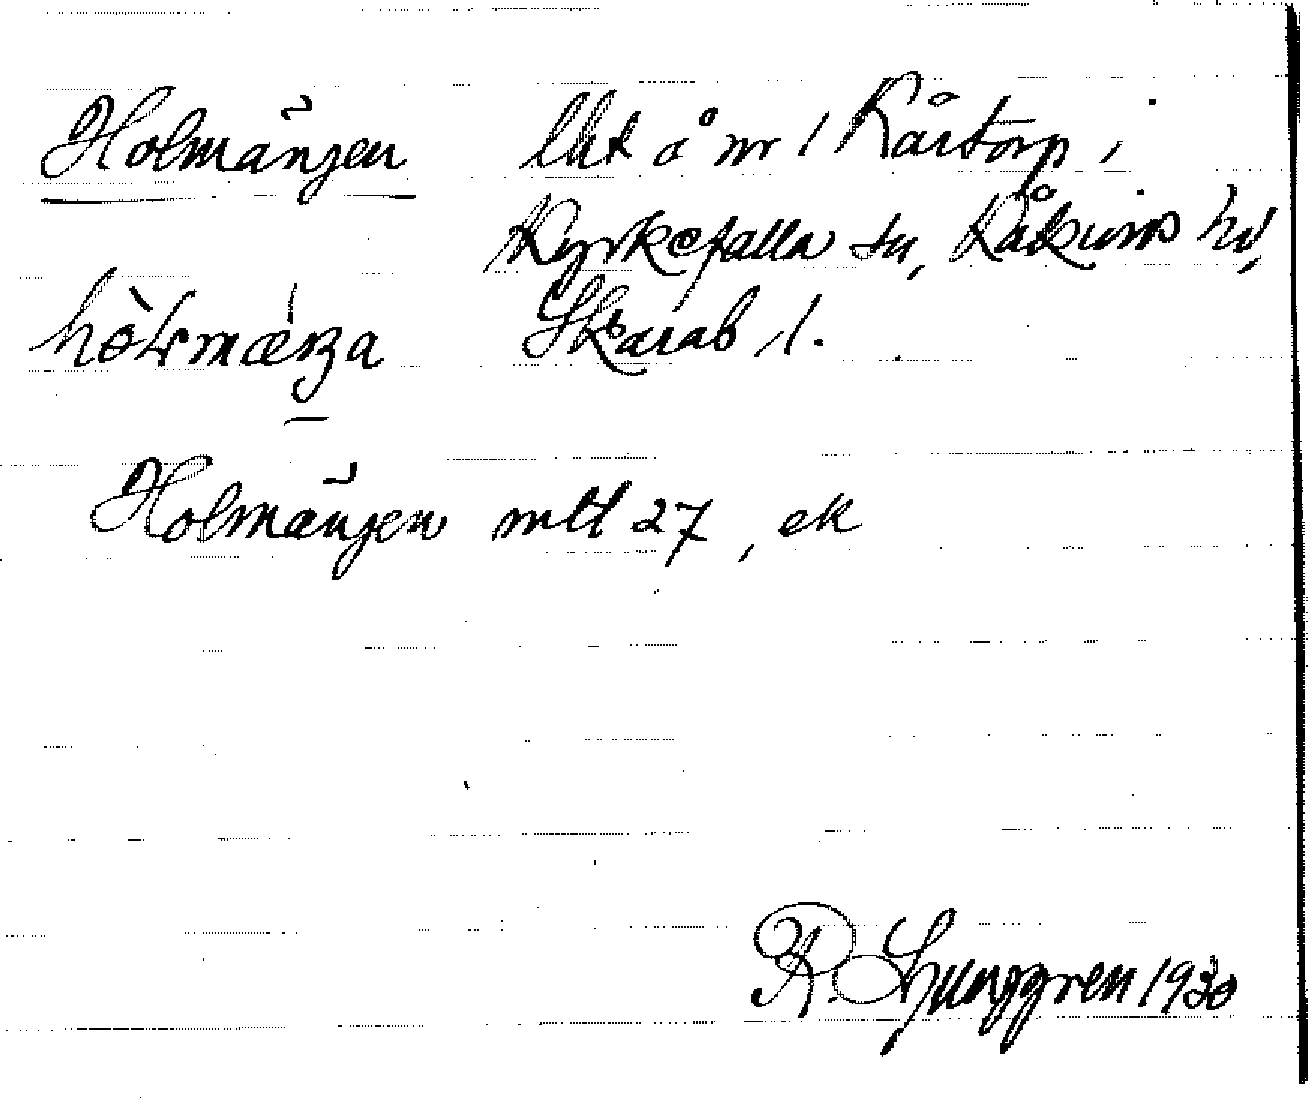 Holmängen lht å nr 1 Kårtorp i
Kyrkefalla sn, Kåkinds hd,
Skarab l.
Holmängen mtl 27, ek
R. Ljunggren 1930